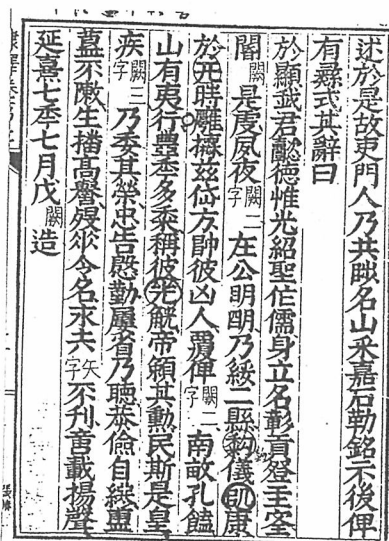 述於是故吏門人乃共陟名山采嘉石勒銘示後俾
有彝式其辭曰
於顯我君懿德惟光紹聖作儒身立名彰貢登王室
閽闕是虔夙夜闕二字在公明明乃綏二縣黎儀以康
於亓時雝撫茲岱方帥彼凶人覆俾闕二字南畝孔饁
山有夷行豐秊多黍稱彼兕觥帝賴其勳民斯是皇
疾闕三字乃委其榮忠告慇勤屢省乃聽恭儉自終簠
簋不敶生播高譽歿垂令名永夫矢字不刊萬載揚聲
延熹七秊七月戊闕造